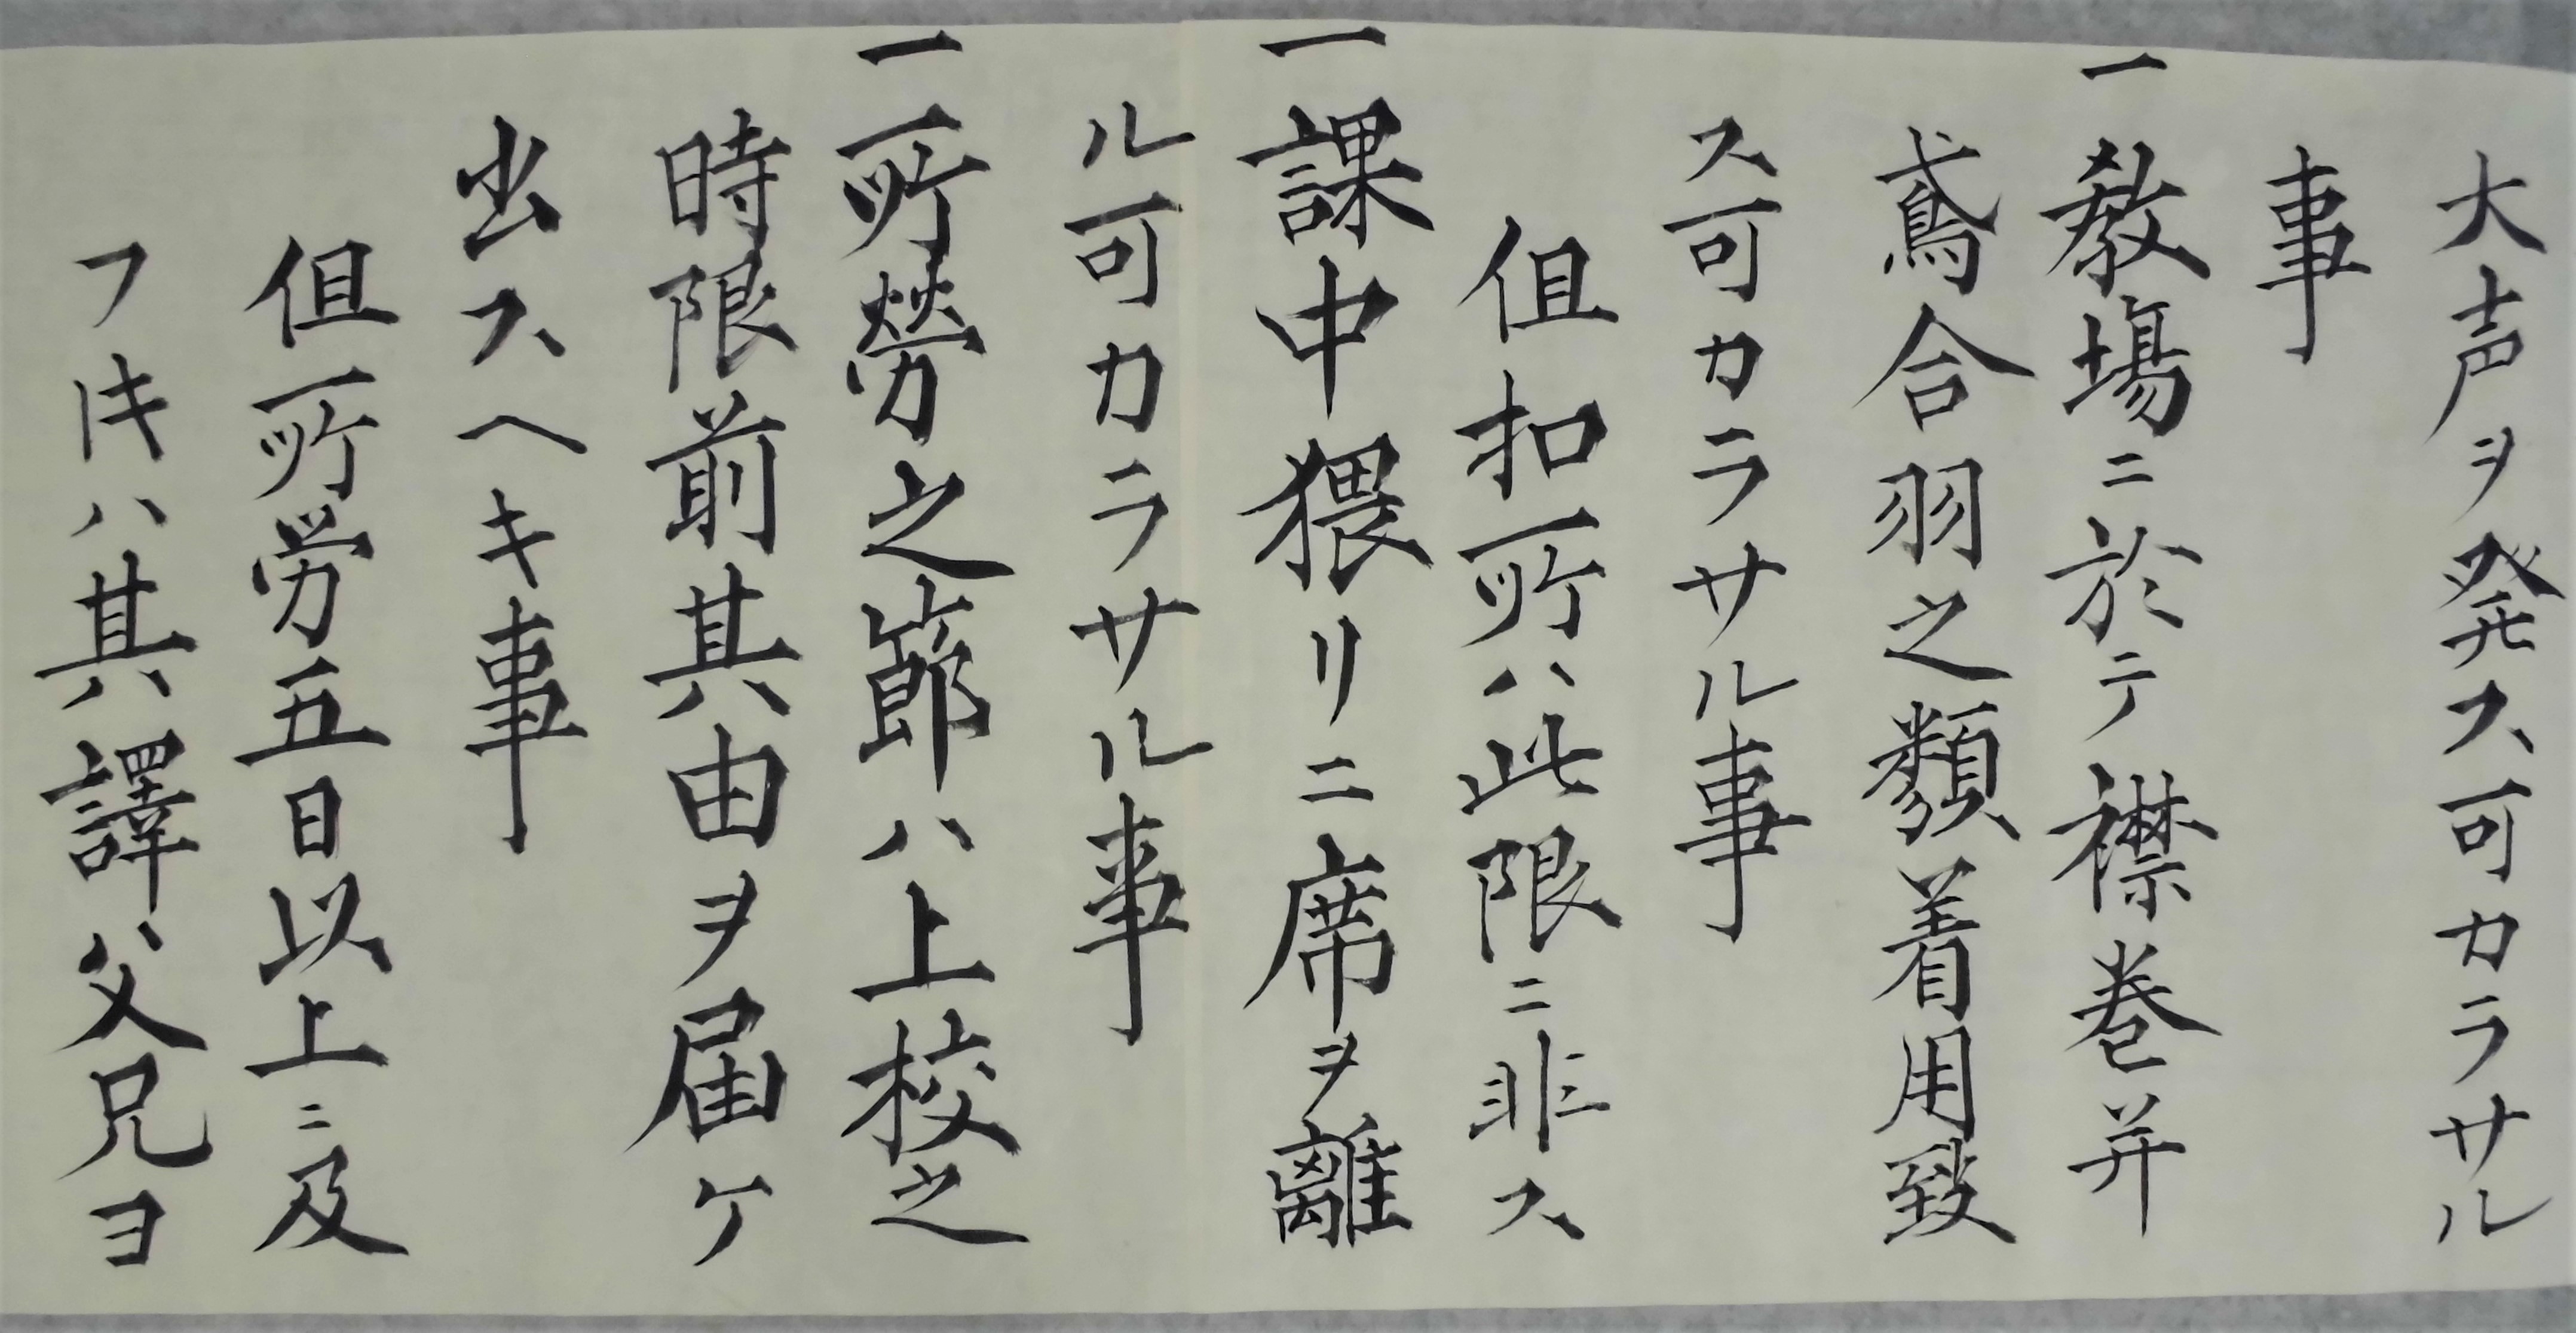 大声ヲ発ス可カラサル
事
一教場ニ於テ襟巻并
鳶合羽之類着用致
ス可カラサル事
但扣所ハ此限ニ非ス
一課中猥リニ席ヲ離
ル可カラサル事
一所勞之節ハ上校之
時限前其由ヲ届ケ
出スヘキ事
但所労五日以上ニ及
フ𪜈ハ其譯父兄ヨ